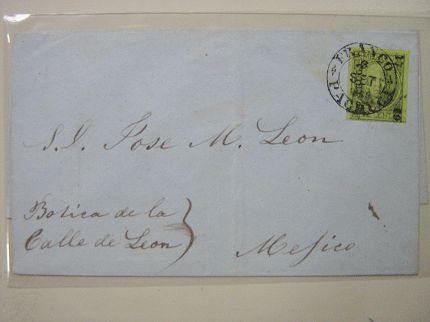 FRANCO
S. D. Jose M. Leon
Botica de la
Calle de Leon
Mejico